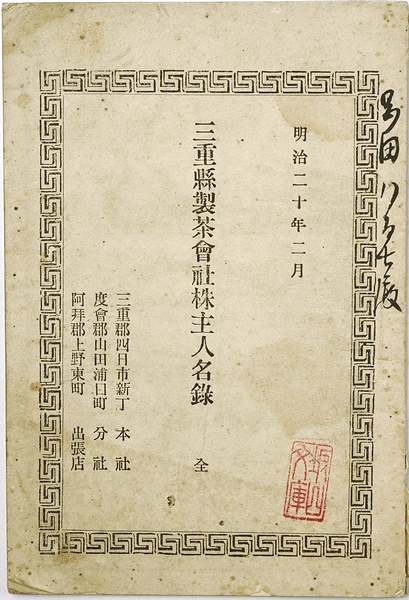 明治二十年二月
三重縣製茶會社株主人名錄 全
三重郡四日市新丁 本社
度會郡山田浦口町 分社
阿拜郡上野東町 出張店